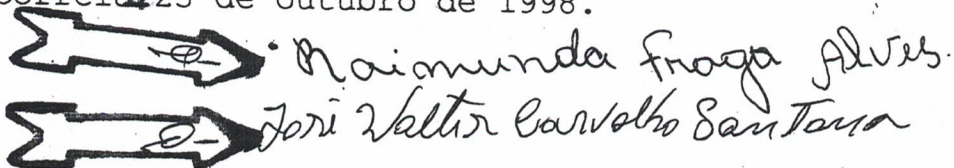 25 de outubro de 1998.
Raimunda Fraga Alves.
José Valtir Carvalho Santana